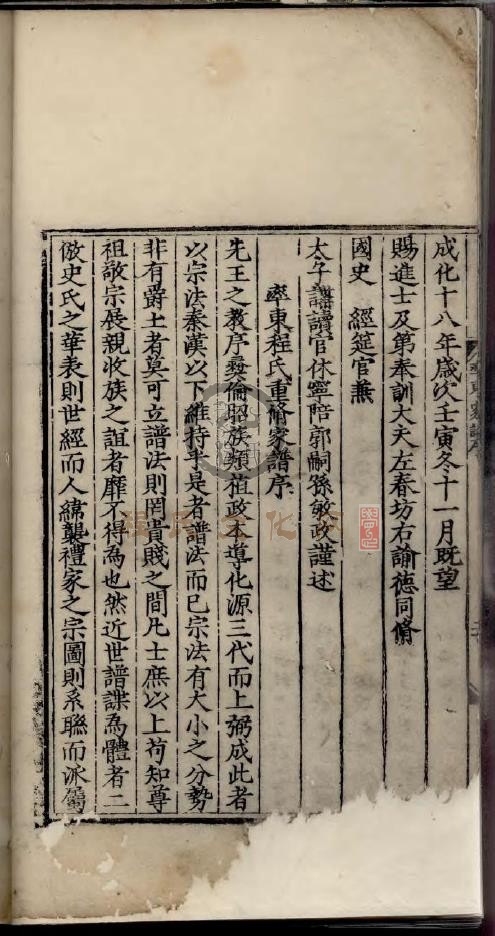 成化十八年歲次壬寅冬十一月既望
賜進士及第奉訓大夫左春坊右諭德同脩
國史　經筵官兼
太子講讀官休寧陪郭嗣孫敏政謹述
率東程氏重脩家譜序
先王之教序彞倫昭族類植政本導化源三代而上弼成此者
以宗法秦漢以下維持乎是者譜法而已宗法有大小之分勢
非有爵土者莫可立譜法則罔貴賤之間凡士庶以上苟知尊
祖敬宗展親收族之誼者靡不得為也然近世譜諜為體者二
倣史氏之年表則世經而人緯襲禮家之宗圖則系聯而派屬